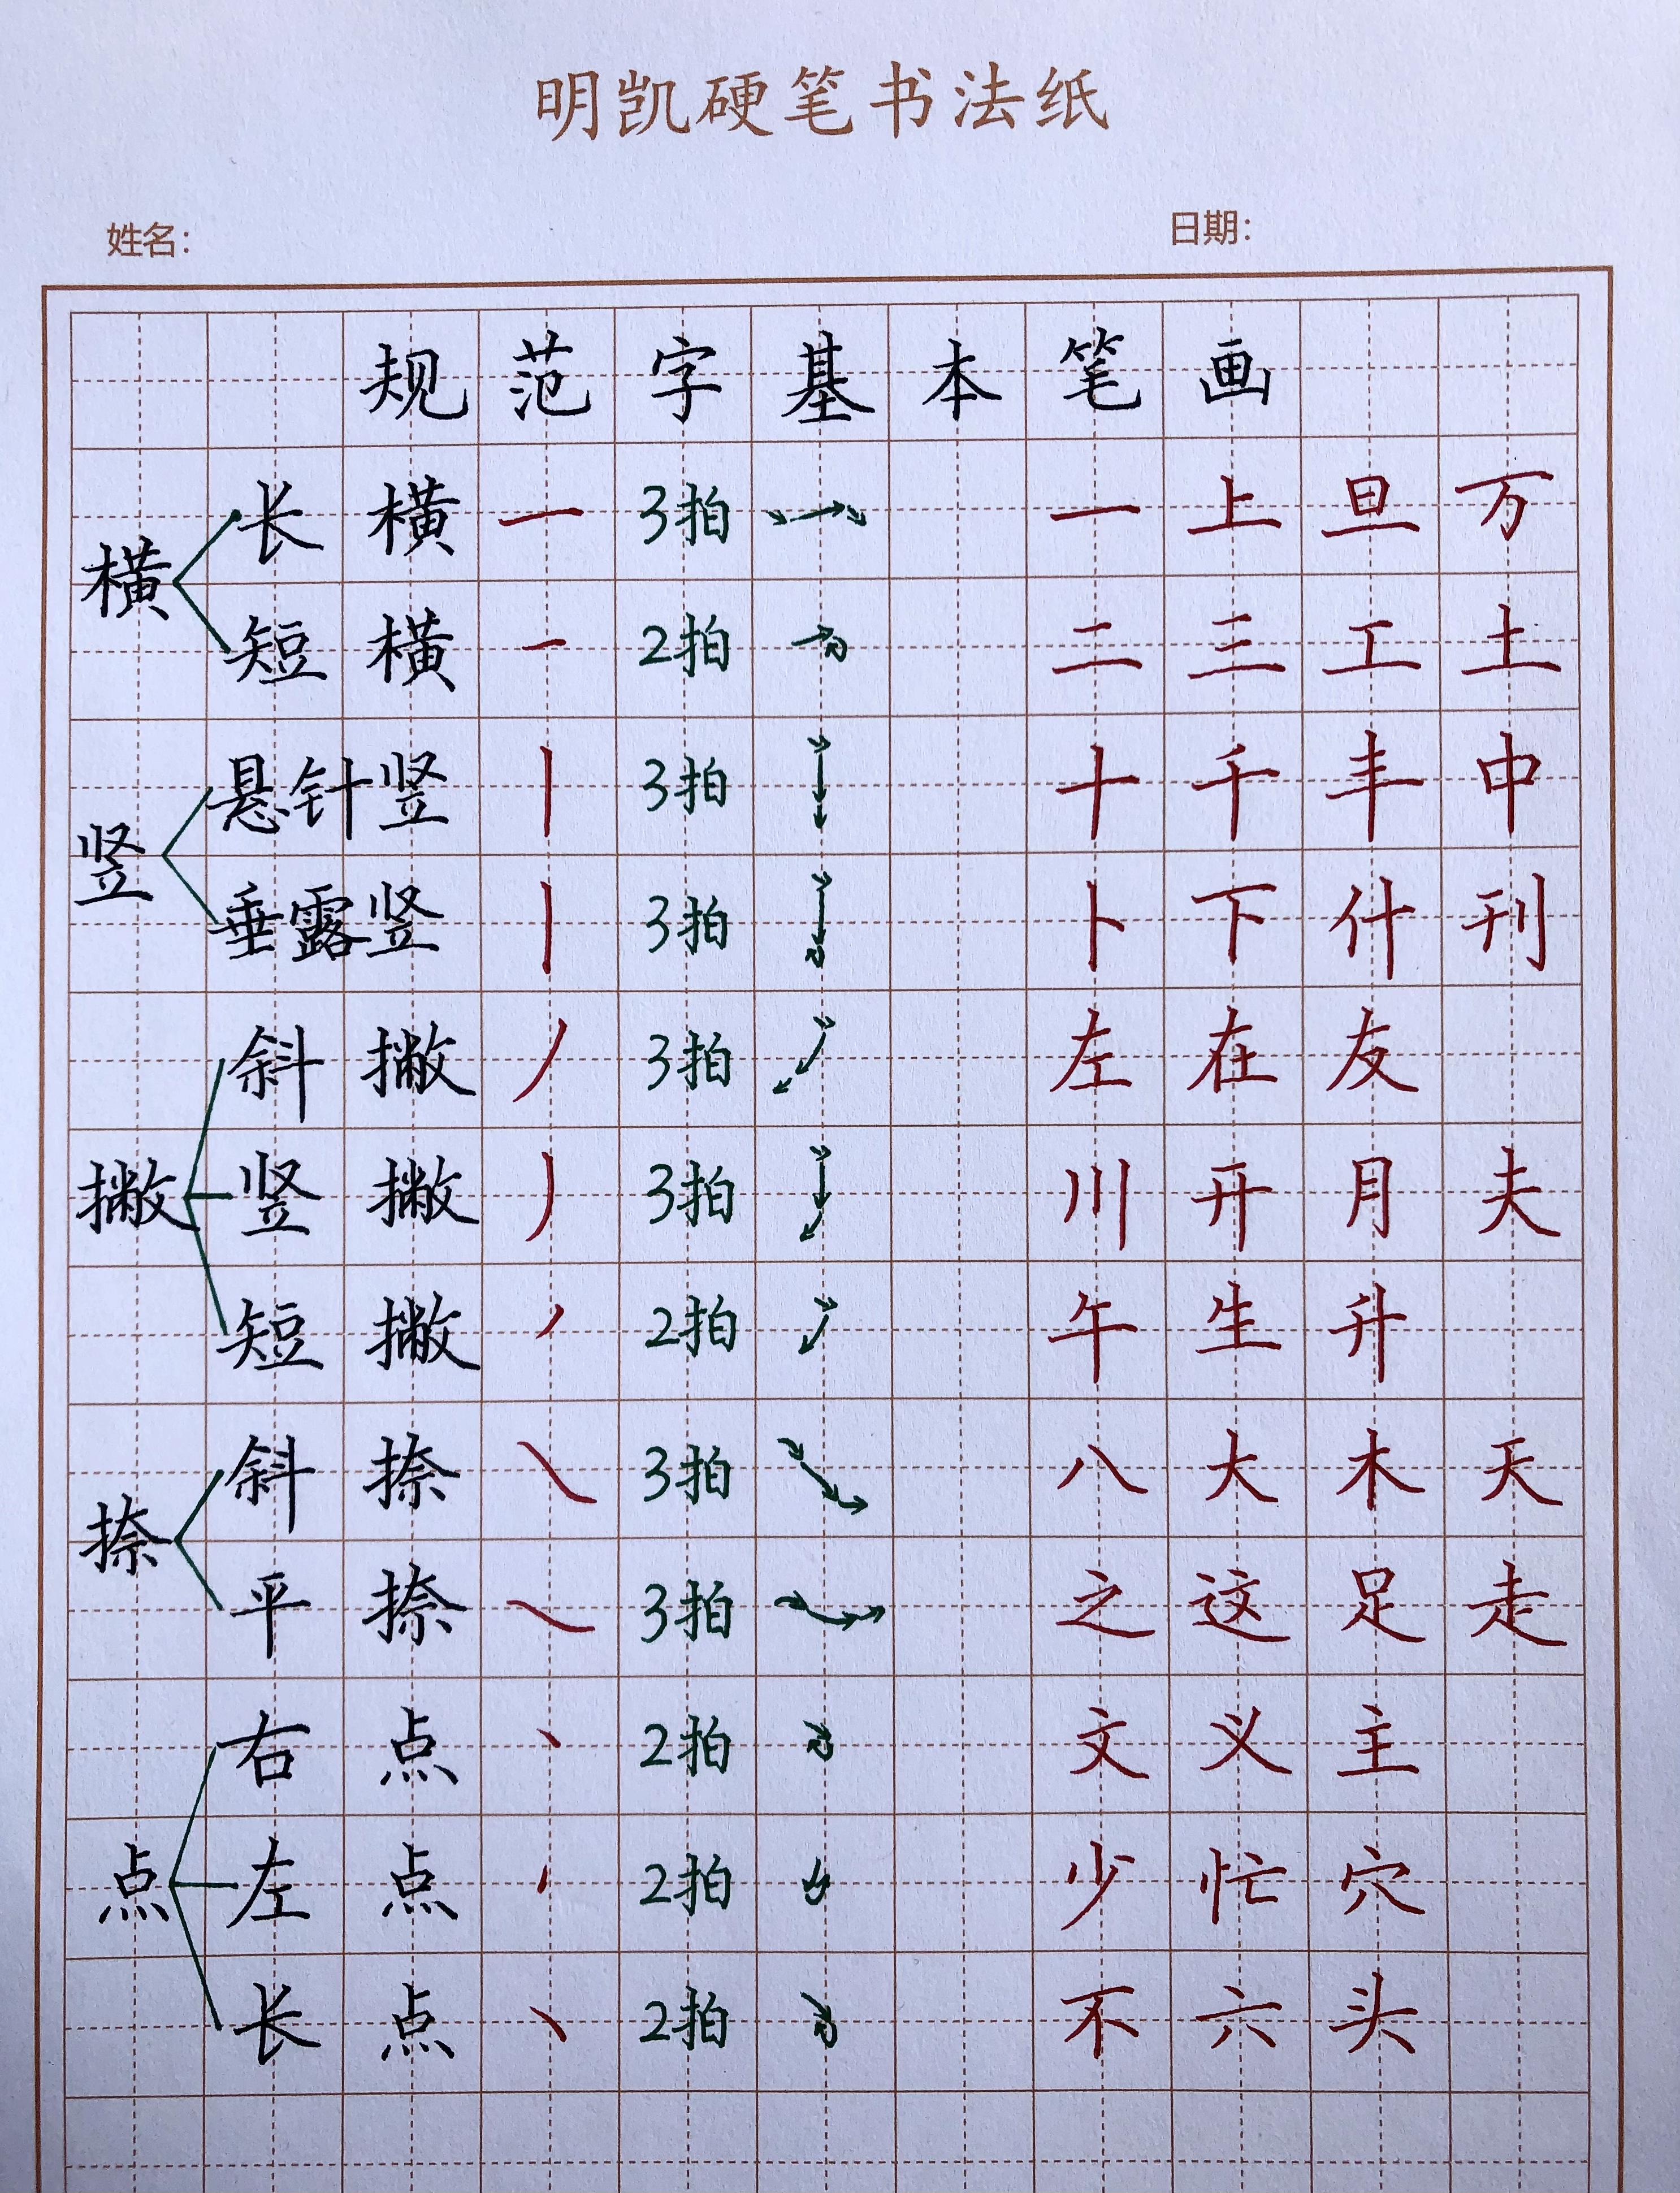 明凯硬笔书法纸
姓名： 日期：
规范字基本笔画
横
长横 一 3拍 一上旦万
短横 一 2拍 二三工土
竖
悬针竖 丨 3拍 十千丰中
垂露竖 丨 3拍 卜下什刊
撇
斜撇 丿 3拍 左在友
竖撇 丿 3拍 川开月夫
短撇 丿 2拍 午生升
捺
斜捺 ㇏ 3拍 八大木天
平捺 ㇏ 3拍 之这足走
点
右点 丶 2拍 文义主
左点 丶 2拍 少忙穴
长点 丶 2拍 不六头